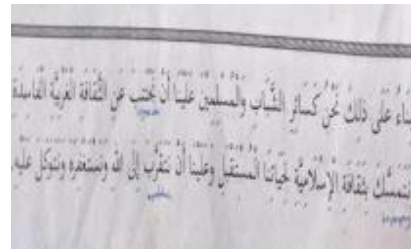 بناء عَلَى ذٰلِكَ نَحْنُ كَسَائِرِ الشَّبَابِ وَالْمُسْلِمِينَ عَلَيْنَا أَنْ نَجْتَنِبَ عَنِ الثَّقَافَةِ الْغَرْبِيَّةِ الْفَاسِدَةِ
نَتَمَسَّكَ بِثَقَافَةِ الْإِسْلَامِيَّةِ لِحَيَاتِنَا الْمُسْتَقْبَلِ وَعَلَيْنَا أَنْ نَتَقَرَّبَ إِلَى اللهِ وَنَسْتَغْفِرَهُ وَنَتَوَكَّلَ عَلَيْهِ